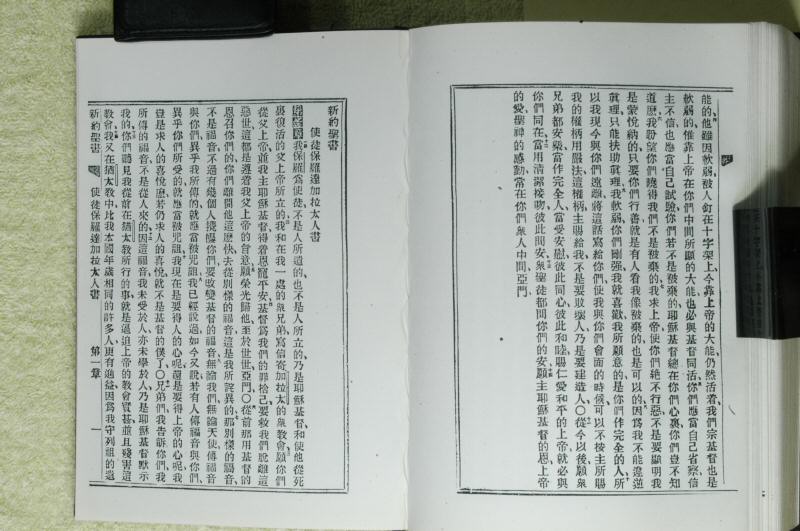 能的、他雖因軟弱被人釘在十字架上、今靠上帝的大能仍然活着、我們宗基督也是
軟弱的、惟靠上帝在你們中間所顯的大能、也必與基督同活、你們應當自己省察信
主不信、也應當自己試驗、你們若不是被棄的、耶穌基督總在你們心裏、你們豈不知
道麽、我盼望你們曉得我們不是被棄的、我求上帝使你們絕不行惡、不是要顯明我
是蒙悅納的、只要你們行善、就是有人看我像被棄的也是可以的、因爲我不能違逆
眞理、只能扶助眞理、我軟弱你們剛强、我就喜歡、我所願意的、是你們作完全的人、所
以我現今與你們遠離、將這話寫給你們、使我與你們會面的時候、可以不按主所賜
我的權柄用嚴法、這權柄主賜給我、不是要敗壞人、乃是要建造人、〇從今以後、願衆
兄弟都安樂、當作完全人、當受安慰、彼此同心、彼此和睦、賜仁愛和平的上帝就必與
你們同在、當用清潔接吻彼此問安、衆聖徒都問你們的安、願主耶穌基督的恩、上帝
的愛、聖神的感動、常在你們衆人中間、亞們、
新約聖書
使徒保羅達加拉太人書
第一章我保羅爲使徒、不是人所遣的、也不是人所立的、乃是耶穌基督和使他從死
裏復活的父上帝所立的、我和在我一處的衆兄弟寫信寄加拉太的衆敎會、願你們
從父上帝、並我主耶穌基督、得着恩寵平安、基督爲我們的罪捨己、要救我們脫離這
惡世、這都是遵着我父上帝的旨意、願榮光歸他至於世世、亞們、〇從前那用基督的
恩召你們的、你們離開他這麽快、去從別樣的福音、這是我所詫異的、那別樣的福音、
不是福音、不過有幾個人擾亂你們、要改變基督的福音、無論我們、無論天使、傳福音
與你們、異乎我所傳的、就應當被咒詛、我已經說過、如今又說、若有人傳福音與你們、
異乎你們所受的、就應當被咒詛、我現在是要得人的心呢、還是要得上帝的心呢、我
豈是求人的喜悅麽、若仍求人的喜悅、就不是基督的僕了、〇兄弟們、我告訴你們、我
所傳的福音、不是從人來的、因這福音我未受於人、亦未學於人、乃是耶穌基督默示
我的、你們聽見我從前在猶太敎所行的事、就是逼迫上帝的敎會實甚、並且殘害這
敎會、我又在猶太敎中、比我本國年歲相同的許多人更有進益、因爲我守列祖的遺
新約聖書 使徒保羅達加拉太人書 第一章 一